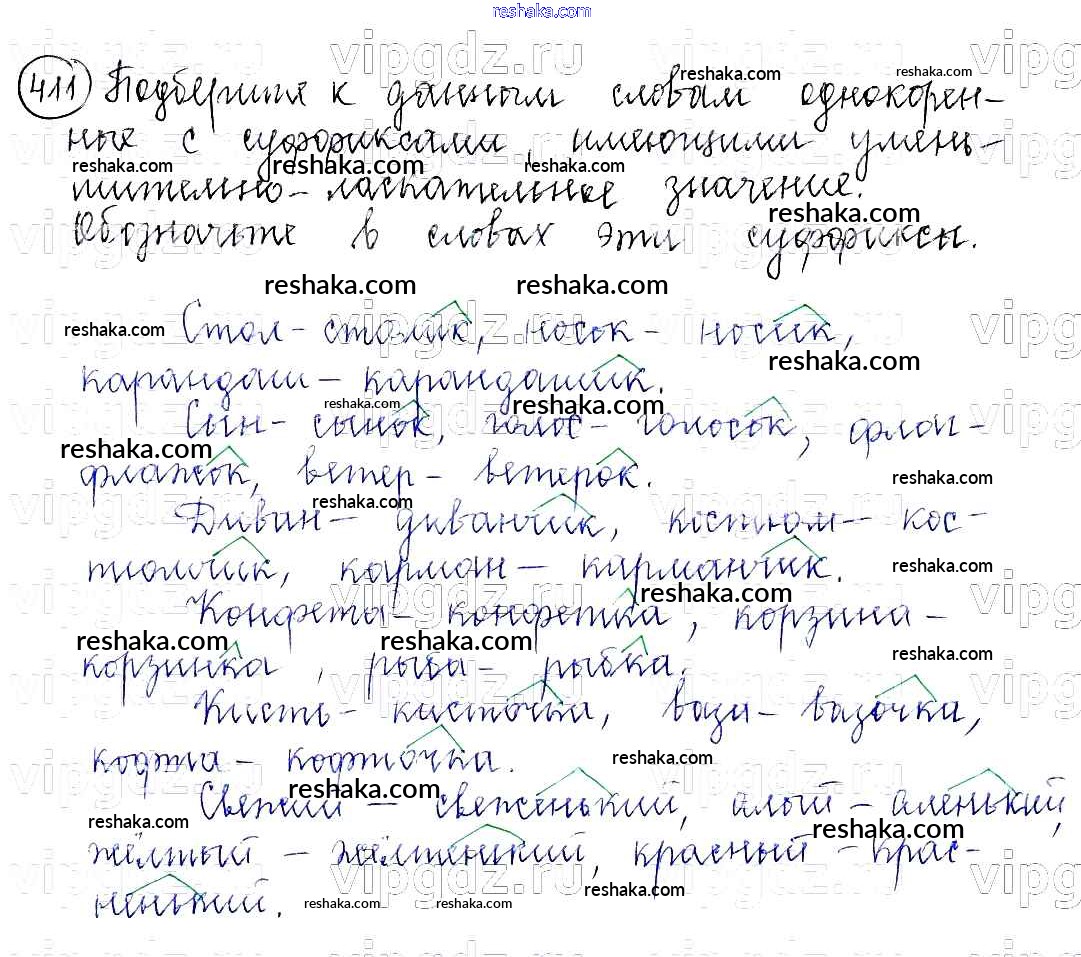 reshaka.com
411 Подберите к данным словам однокорен-
ные с суффиксами, имеющими умень-
шительно-ласкательное значение.
Обозначьте в словах эти суффиксы.
Стол - столик, носок - носик,
карандаш - карандашик.
Сын - сынок, голос - голосок, флаг -
флажок, ветер - ветерок.
Диван - диванчик, костюм - кос-
тюмчик, карман - карманчик.
Конфета - конфетка, корзина -
корзинка, рыба - рыбка.
Кисть - кисточка, ваза - вазочка,
кофта - кофточка.
Свежий - свеженький, алый - аленький,
жёлтый - жёлтенький, красный - крас-
ненький.